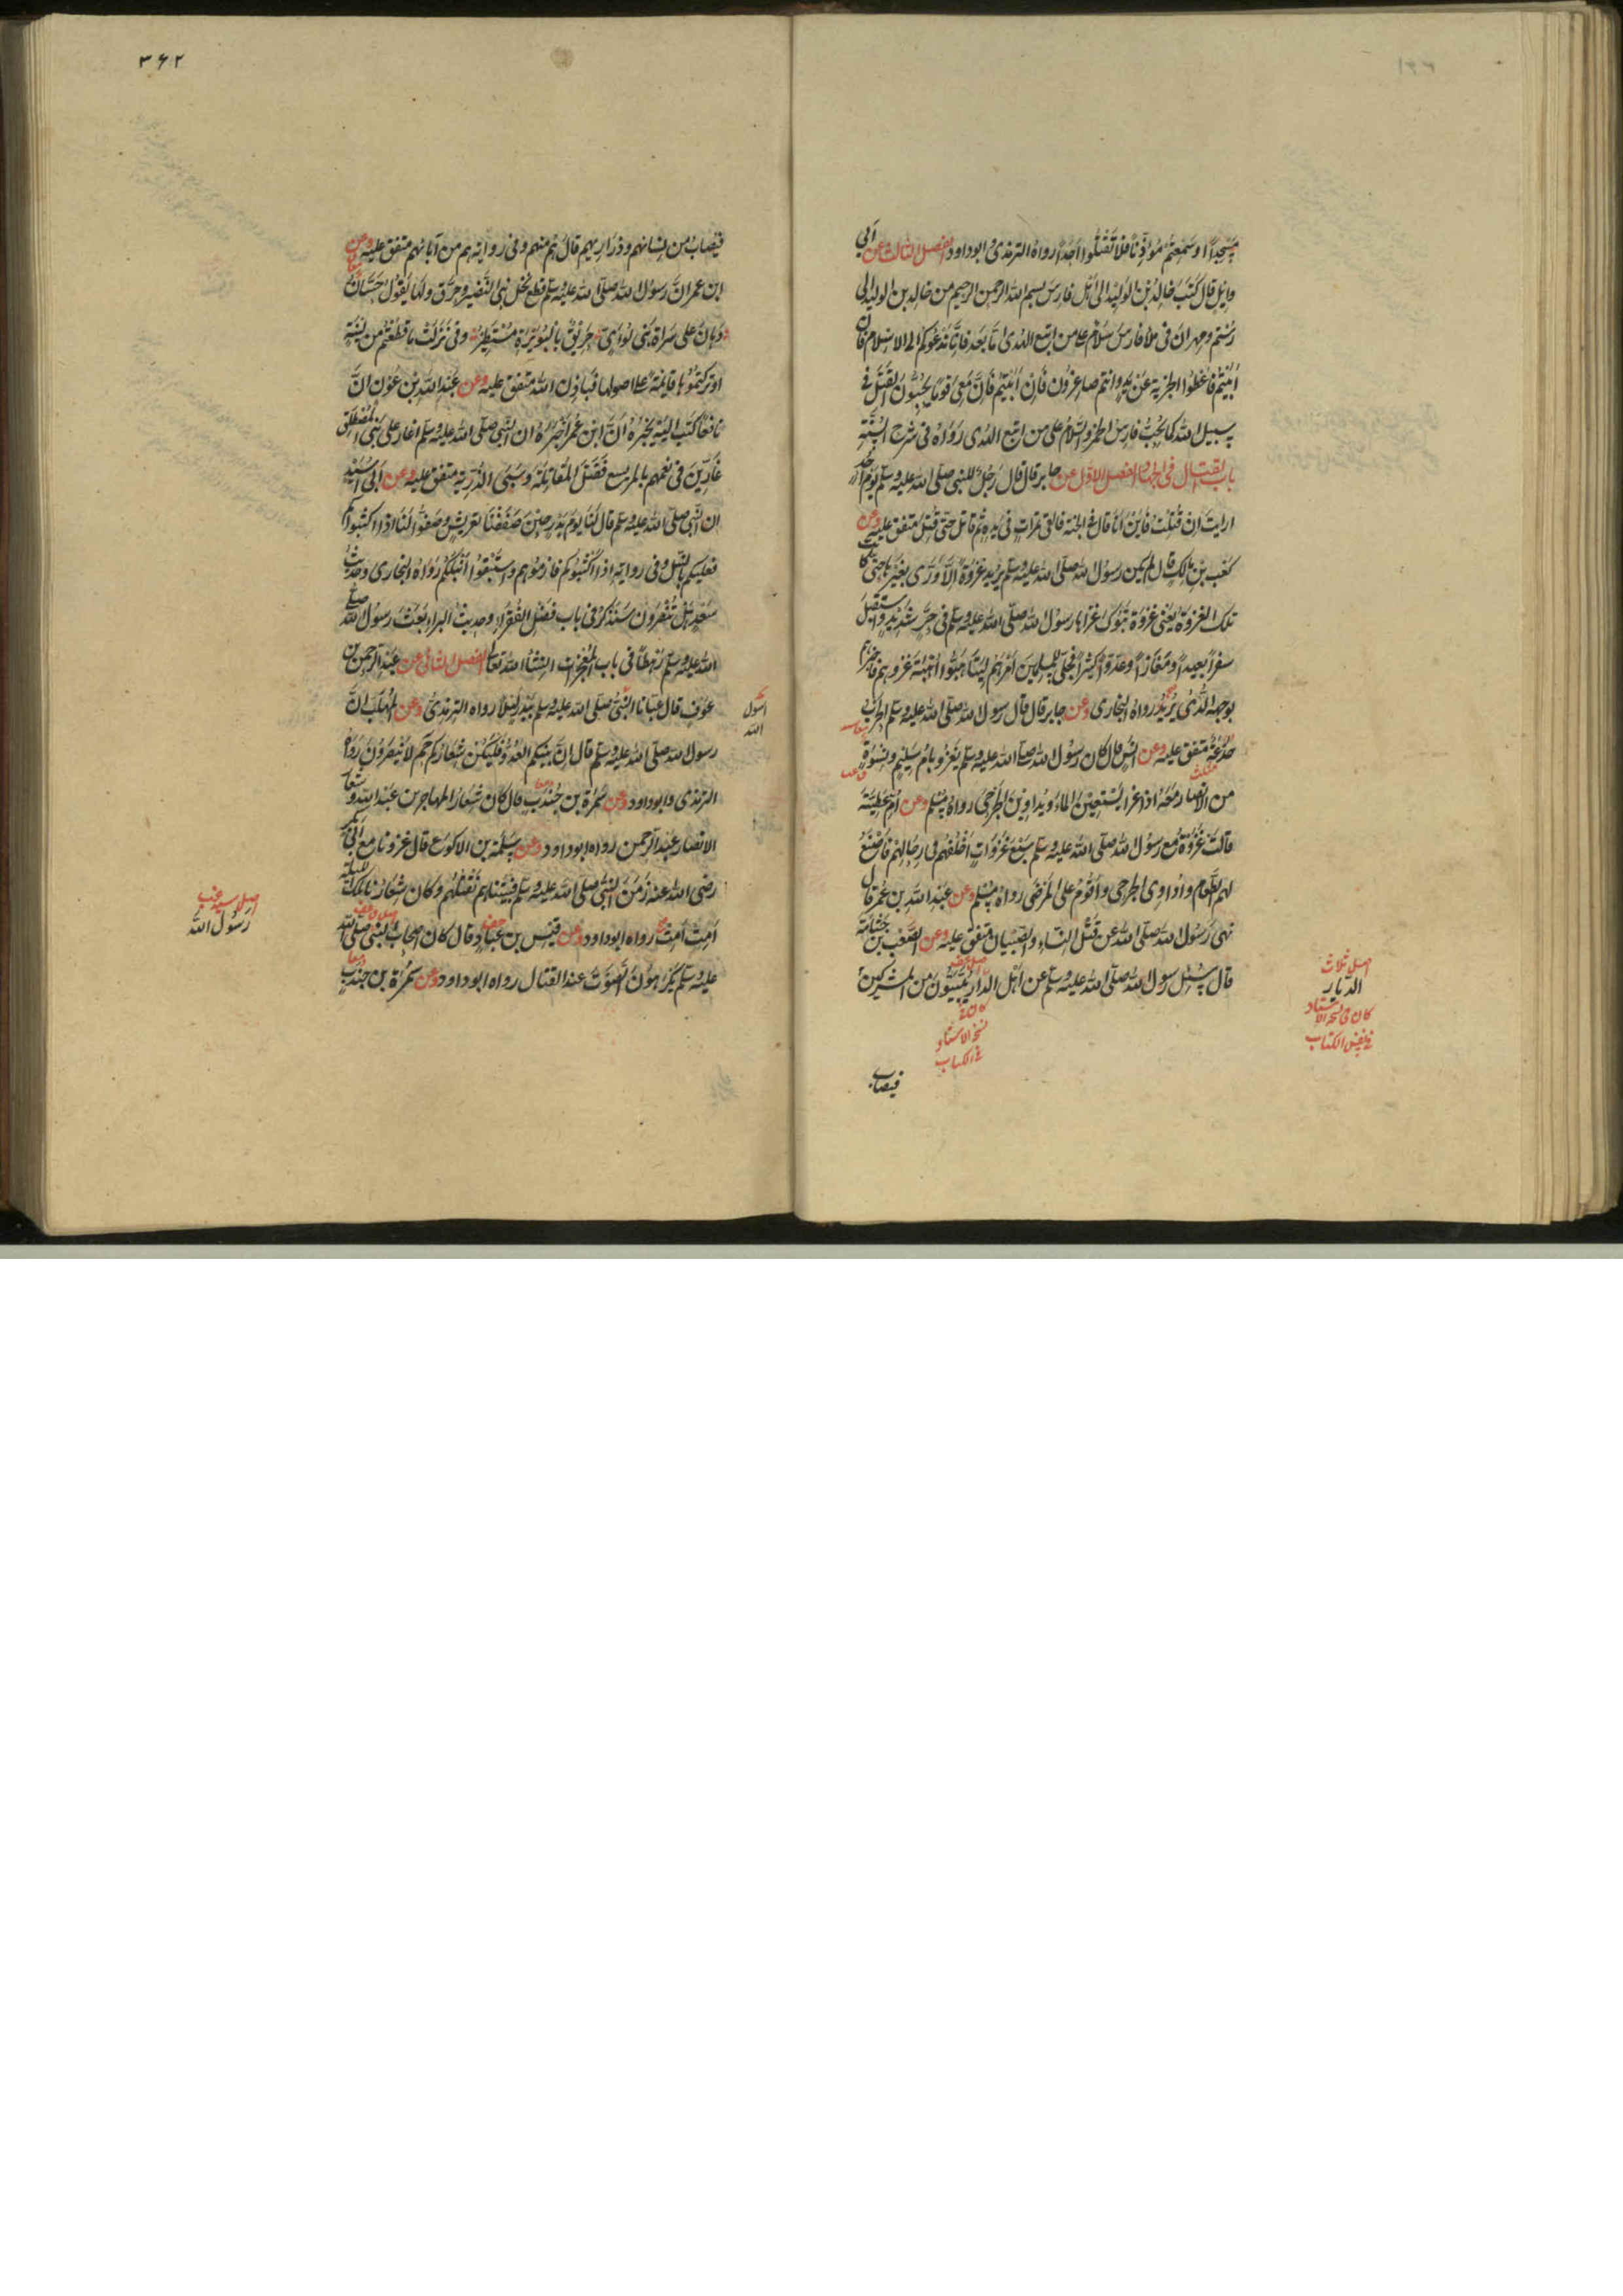 مسجدا او سمعتم موذنا فلا تقتلوا احدا رواه الترمذی و ابو داود الفصل الثالث عن ابی
وایل قال کتب خالد بن الولید الی اهل فارس بسم الله الرحمن الرحیم من خالد بن الولید الی
رستم و مهران فی ملأ فارس سلام علی من اتبع الهدی اما بعد فانا ندعوکم الی الاسلام فان
ابیتم فاعطوا الجزیة عن ید و انتم صاغرون فان ابیتم فان معی قوما یحبون القتل فی
سبیل الله کما یحب فارس الخمر والسلام علی من اتبع الهدی رواه فی شرح السنة
باب القتال فی الجهاد الفصل الاول عن جابر قال قال رجل للنبی صلی الله علیه وسلم یوم احد
ارایت ان قتلت فاین انا قال فی الجنة فالقی تمرات فی یده ثم قاتل حتی قتل متفق علیه وعن
کعب بن مالک قال لم یکن رسول الله صلی الله علیه وسلم یرید غزوة الا وری بغیرها حتی کانت
تلک الغزوة یعنی غزوة تبوک غزاها رسول الله صلی الله علیه وسلم فی حر شدید واستقبل
سفرا بعیدا ومفازا وعدوا کثیرا فجلی للمسلمین امرهم لیتاهبوا اهبة غزوهم فاخبرهم
بوجهه الذی یرید رواه البخاری وعن جابر قال قال رسول الله صلی الله علیه وسلم الحرب
خدعة متفق علیه وعن انس قال کان رسول الله صلی الله علیه وسلم یغزو بام سلیم ونسوة
من الانصار معه اذا غزا یسقین الماء ویداوین الجرحی رواه مسلم وعن ام عطیة
قالت غزوت مع رسول الله صلی الله علیه وسلم سبع غزوات اخلفهم فی رحالهم فاصنع
لهم الطعام واداوی الجرحی واقوم علی المرضی رواه مسلم وعن عبد الله بن عمر قال
نهی رسول الله صلی الله عن قتل النساء والصبیان متفق علیه وعن الصعب بن جثامة
قال سئل رسول الله صلی الله علیه وسلم عن اهل الدار یبیتون من المشرکین
اصل ثلاث
الدیار
کان فی نسخة الاستاد
فی نفس الکتاب
نسخة الاستاد
فی الکتاب
فیصاب
۳۶۲
فیصاب من نسائهم وذراریهم قال هم منهم وفی روایة هم من آبائهم متفق علیه وعن
ابن عمر ان رسول الله صلی الله علیه وسلم قطع نخل بنی النضیر وحرق ولها یقول حسان
وهان علی سراة بنی لؤی حریق بالبویرة مستطیر وفی نزلت ما قطعتم من لینة
او ترکتموها قائمة علی اصولها فباذن الله متفق علیه وعن عبد الله بن عون ان
نافعا کتب الیه یخبره ان ابن عمر اخبره ان النبی صلی الله علیه وسلم اغار علی بنی المصطلق
غارین فی نعمهم بالمریسیع فقتل المقاتلة وسبی الذریة متفق علیه وعن ابی اسید
ان النبی صلی الله علیه وسلم قال لنا یوم بدر حین صففنا لقریش وصفوا لنا اذا اکثبوکم
فعلیکم بالنبل وفی روایة اذا اکثبوکم فارموهم واستبقوا نبلکم رواه البخاری وحدیث
سعد هل تنصرون سنذکر فی باب فضل الفقراء وحدیث البراء بعث رسول الله صلی
الله علیه وسلم رهطا فی باب المعجزات انشاء الله تعالی الفصل الثانی عن عبد الرحمن بن
عوف قال عبانا النبی صلی الله علیه وسلم ببدر لیلا رواه الترمذی وعن المهلب ان
رسول الله صلی الله علیه وسلم قال ان بیتکم العدو فلیکن شعارکم حم لا ینصرون رواه
الترمذی وابو داود وعن سمرة بن جندب قال کان شعار المهاجرین عبد الله وشعار
الانصار عبد الرحمن رواه ابو داود وعن سلمة بن الاکوع قال غزونا مع ابی بکر
رضی الله عنه زمن النبی صلی الله علیه وسلم فبیتناهم نقتلهم وکان شعارنا تلک اللیلة
امت امت رواه ابو داود وعن قیس بن عباد قال کان اصحاب النبی صلی الله
علیه وسلم یکرهون الصوت عند القتال رواه ابو داود وعن سمرة بن جندب
رسول
الله
رسول الله